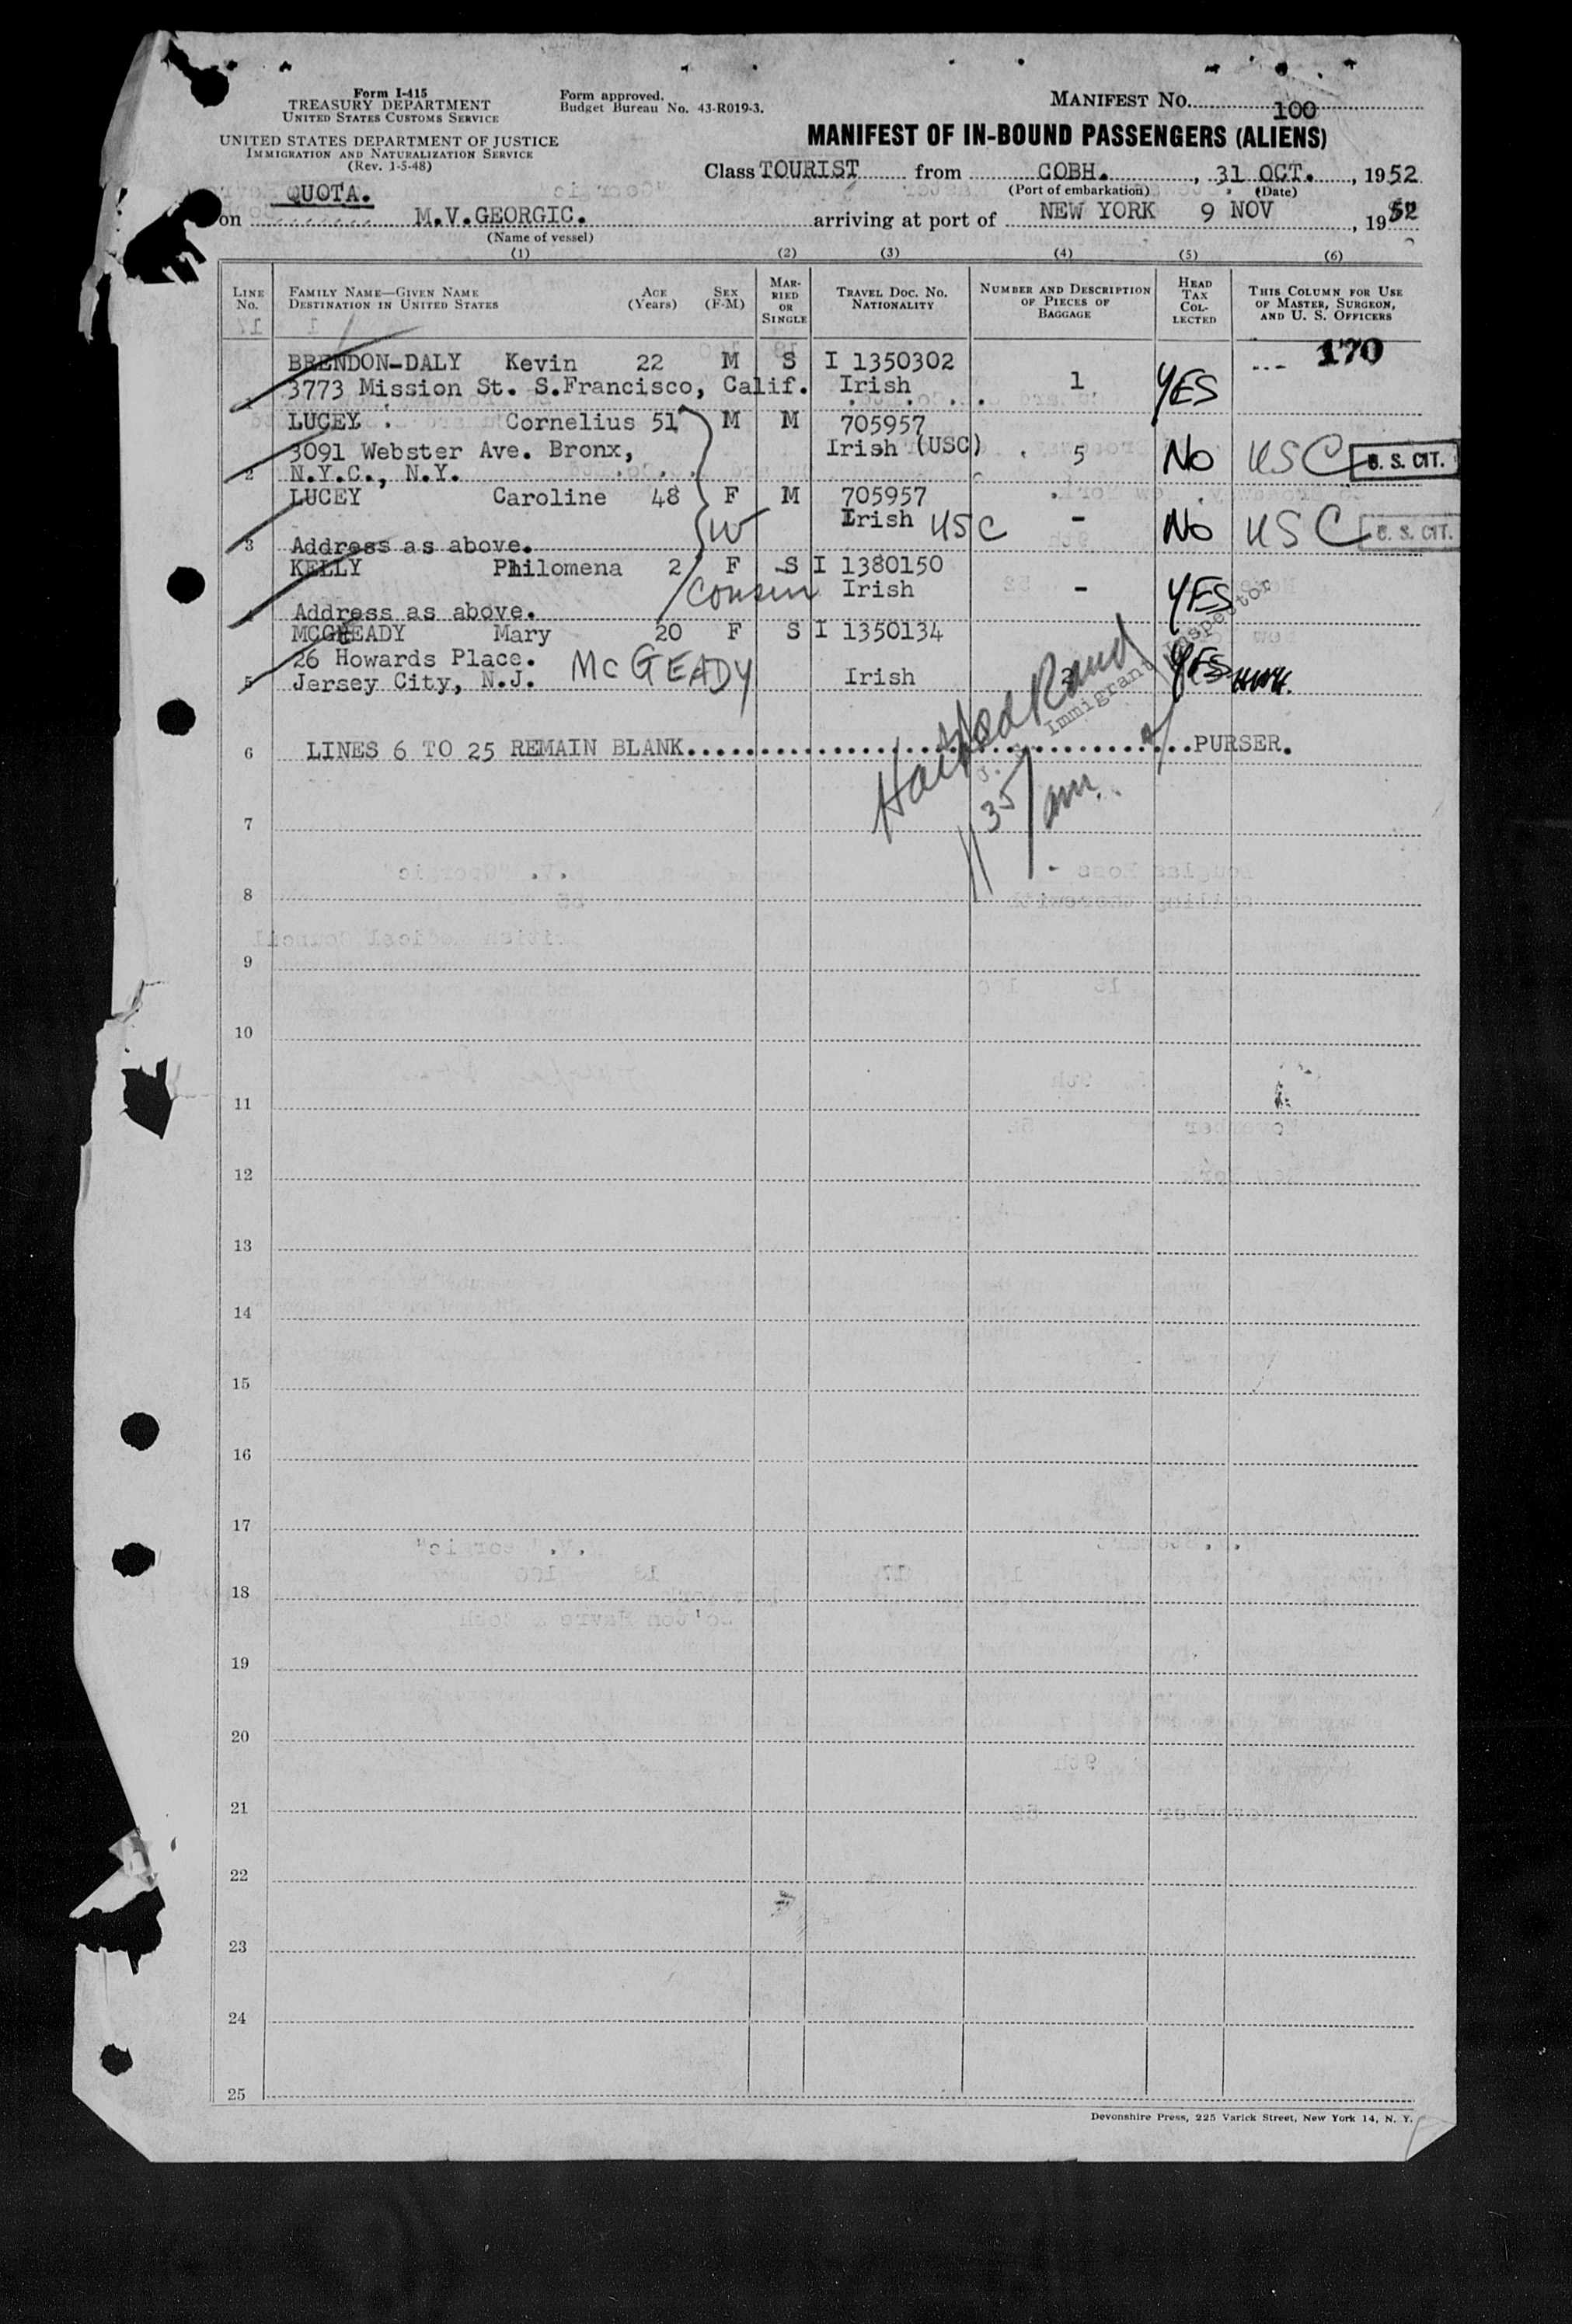 Form I-415
TREASURY DEPARTMENT
UNITED STATES CUSTOMS SERVICE
UNITED STATES DEPARTMENT OF JUSTICE
IMMIGRATION AND NATURALIZATION SERVICE
(Rev. 1-5-48)
Form approved.
Budget Bureau No. 43-R019-3.
MANIFEST No. 100
MANIFEST OF IN-BOUND PASSENGERS (ALIENS)
Class TOURIST from COBH. , 31 OCT. , 1952
(Port of embarkation) (Date)
QUOTA.
on M.V.GEORGIC. arriving at port of NEW YORK 9 NOV , 1952
(Name of vessel)
(1) (2) (3) (4) (5) (6)
LINE No. FAMILY NAME—GIVEN NAME DESTINATION IN UNITED STATES AGE (Years) SEX (F-M) MARRIED OR SINGLE TRAVEL DOC. NO. NATIONALITY NUMBER AND DESCRIPTION OF PIECES OF BAGGAGE HEAD TAX COLLECTED THIS COLUMN FOR USE OF MASTER, SURGEON, AND U. S. OFFICERS
170
BRENDON-DALY Kevin 22 M S I 1350302
1 3773 Mission St. S.Francisco, Calif. Irish 1 YES
LUCEY Cornelius 51 M M 705957
3091 Webster Ave. Bronx, Irish (USC) 5 No USC U. S. CIT.
2 N.Y.C., N.Y.
LUCEY Caroline 48 F M 705957
W Irish USC - No USC U. S. CIT.
3 Address as above.
KELLY Philomena 2 F S I 1380150
cousin Irish - YES
4 Address as above.
MCGEADY Mary 20 F S I 1350134
26 Howards Place. McGEADY
5 Jersey City, N.J. Irish YES
Immigrant Inspector
6 LINES 6 TO 25 REMAIN BLANK. PURSER.
11 35/am.
7
8
9
10
11
12
13
14
15
16
17
18
19
20
21
22
23
24
25
Devonshire Press, 225 Varick Street, New York 14, N. Y.